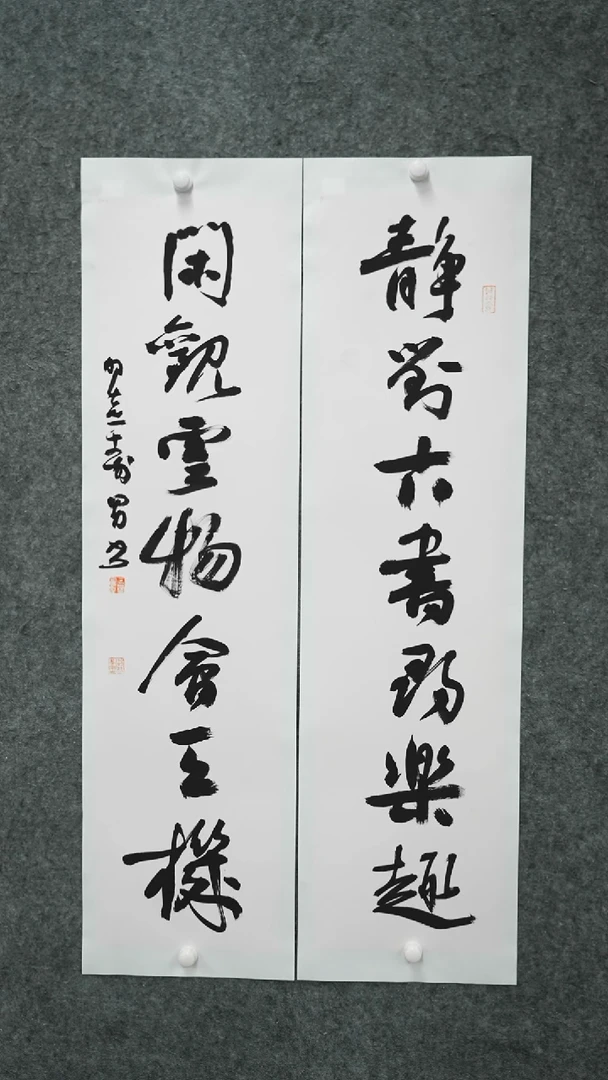 静對古書尋樂趣
閑觀雲物會天機